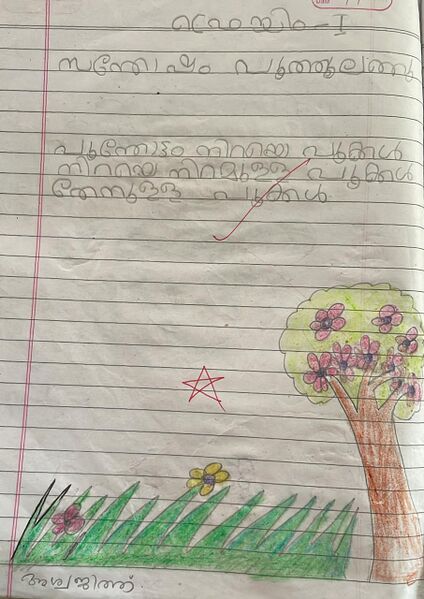 ഫ്രെയിം - I
സന്തോഷം പൂത്തുലഞ്ഞു
പൂന്തോട്ടം നിറയെ പൂക്കൾ
നിറയെ നിറമുള്ള പൂക്കൾ
തേനുള്ള പൂക്കൾ
അശ്വജിത്ത്.